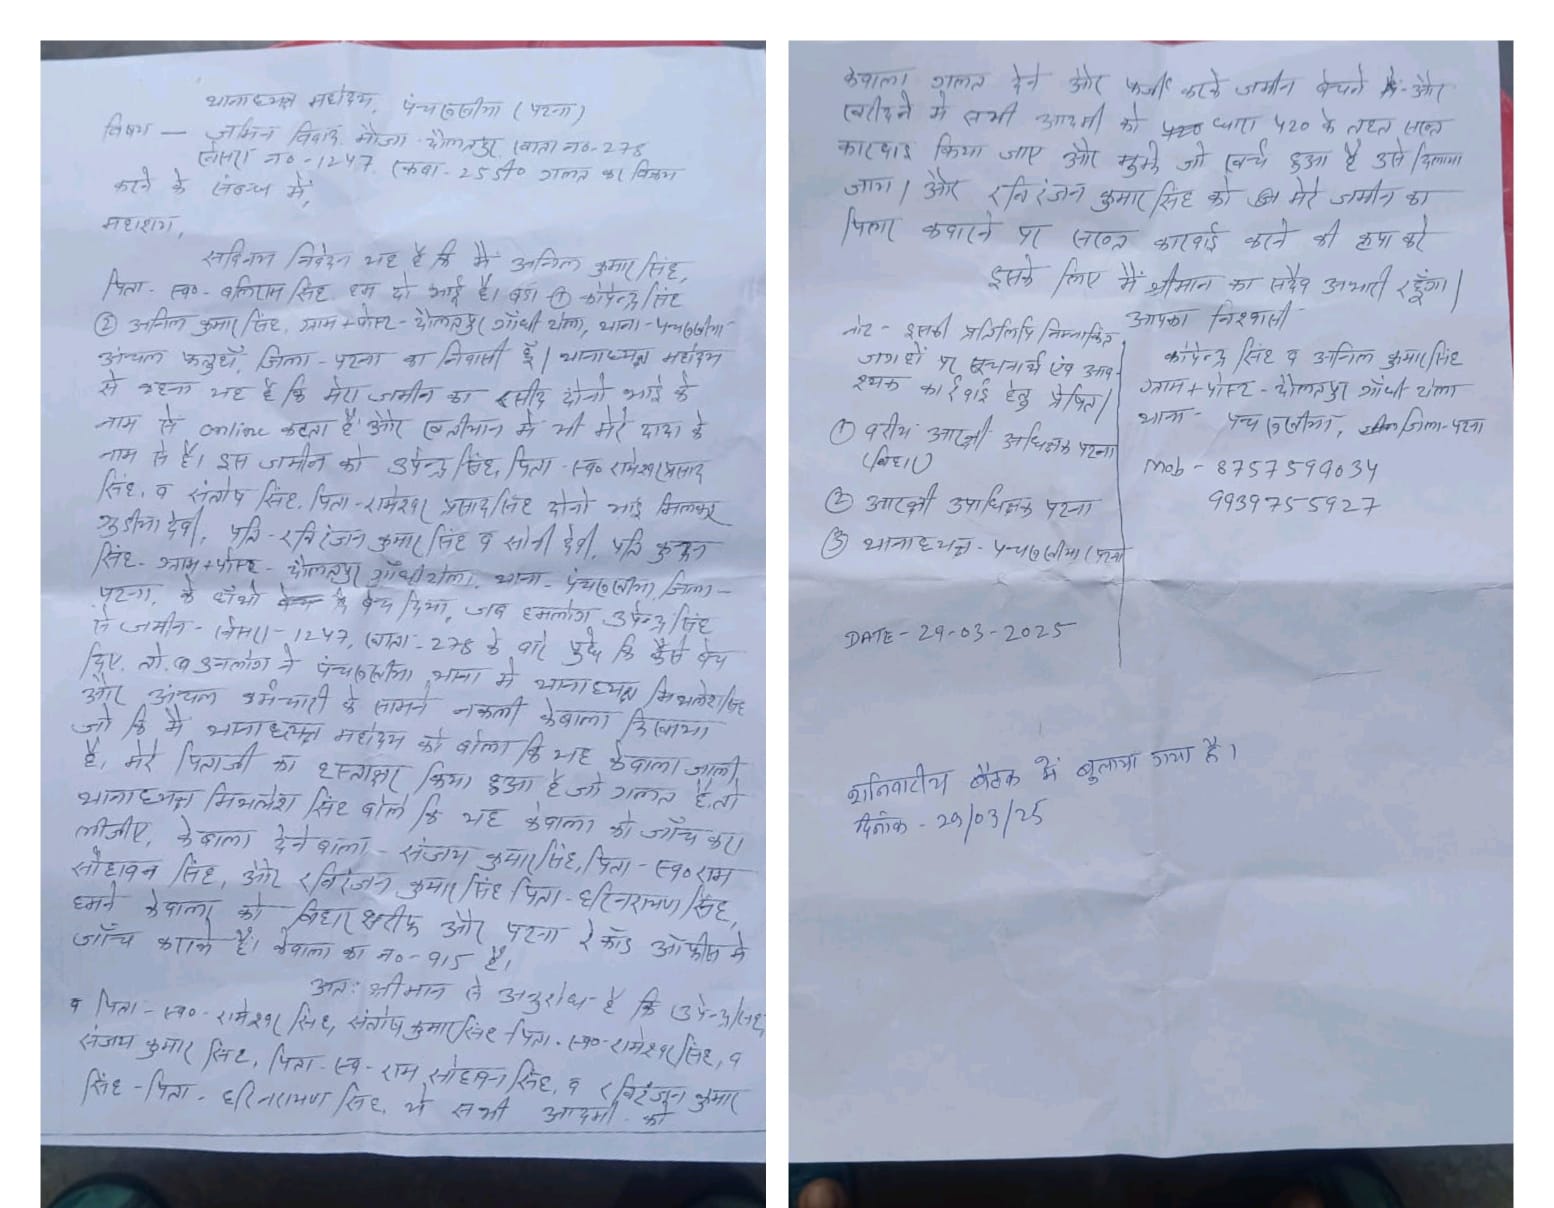 थानाध्यक्ष महोदय, पंचरूखीया (पटना)
विषय — जमिन विवाद मौजा - दौलतपुर, खाता न०-278
खेसरा न०-1247, रकवा-25डी० गलत का विक्रय
करने के संबन्ध में,
महाशय,
सविनय निवेदन यह है कि मैं अनिल कुमार सिंह,
पिता- स्व०- बलिराम सिंह, हम दो भाई है। बड़ा ① कोपेन्द्र सिंह
② अनिल कुमार सिंह, ग्राम+पोस्ट- दौलतपुर गाँधी टोला, थाना- पंचरूखीया-
अंचल फतुहाँ, जिला- पटना का निवासी हूँ। थानाध्यक्ष महोदय
से कहना यह है कि मेरा जमीन का रसीद दोनो भाई के
नाम से online कटता है और खतीयान में भी मेरे दादा के
नाम से है। इस जमीन को उपेन्द्र सिंह, पिता-स्व० रामेश्वर प्रसाद
सिंह, व संतोष सिंह, पिता-रामेश्वर प्रसाद सिंह दोनो भाई मिलकर
गुडीया देवी, पति- रविरंजन कुमार सिंह व सोनी देवी, पति कुन्दन
सिंह- ग्राम+पोस्ट- दौलतपुर गाँधी टोला, थाना- पंचरूखीया, जिला-
पटना, के हाँथो बेच दिया, जब हमलोग उपेन्द्र सिंह
से जमीन- खेसरा-1247, खाता-278 के बारे पुछे कि कैसे बेच
दिए, तो उनलोग ने पंचरूखीया थाना मे थानाध्यक्ष मिथलेश सिंह
और अंचल कर्मचारी के सामने नकली केबाला दिखाया
जो कि मैं थानाध्यक्ष महोदय को बोला कि यह केबाला जाली
है, मेरे पिताजी का हस्ताक्षर किया हुआ है जो गलत है, तो
थानाध्यक्ष मिथलेश सिंह बोले कि यह केबाला को जाँच करा
लीजीए, केबाला देने बाला- संजय कुमार सिंह, पिता- स्व० राम
सोहावन सिंह, और रविरंजन कुमार सिंह पिता- हरिनरायण सिंह,
हमने केबाला को बिहार शरीफ और पटना रेकॉड ऑफीस मे
जाँच कराने है। केबाला का न०-915 है।
अतः श्रीमान से अनुरोध है कि उपेन्द्र सिंह
व पिता-स्व०- रामेश्वर सिंह, संतोष कुमार सिंह पिता- स्व०- रामेश्वर सिंह, व
संजय कुमार सिंह, पिता- स्व- राम सोहावन सिंह, व रविरंजन कुमार
सिंह-पिता- हरिनरायण सिंह, ये सभी आदमी को
केबाला गलत देने और फर्जी करके जमीन बेचने और
खरीदने मे सभी आदमी को धारा 420 के तहत सख्त
कारवाइ किया जाए और मुझे जो खर्च हुआ है उसे दिलाया
जाय। और रविरंजन कुमार सिंह को मेरे जमीन का
पिलर कबारने पर सख्त कारवाई करने की कृपा करे
इसके लिए मैं श्रीमान का सदैव अभारी रहूँगा।
आपका विश्वासी-
कोपेन्द्र सिंह व अनिल कुमार सिंह
ग्राम+पोस्ट- दौलतपुर गाँधी टोला
थाना- पंचरूखीया, जिला-पटना
Mob- 8757599034
9939755927
नोट- इसकी प्रतिलिपि निम्नांकित
जगहों पर सूचनार्थ एंव आव-
श्यक कार्रवाई हेतु प्रेषित।
① वरीय आरक्षी अधिक्षक पटना
(बिहार)
② आरक्षी उपाधिक्षक पटना
③ थानाध्यक्ष- पंचरूखीया पटना
DATE-29-03-2025
शनिवारीय बैठक में बुलाया गया है।
दिनांक-29/03/25